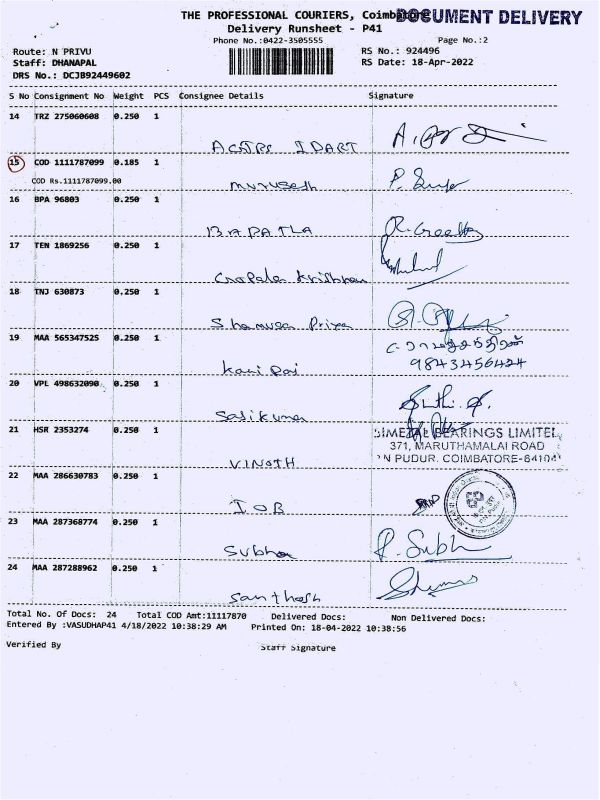 THE PROFESSIONAL COURIERS, Coimbatore
DOCUMENT DELIVERY
Delivery Runsheet - P41
Phone No.:0422-3505555
Page No.:2
Route: N PRIVU
RS No.: 924496
Staff: DHANAPAL
RS Date: 18-Apr-2022
DRS No.: DCJB92449602
S No Consignment No Weight PCS Consignee Details Signature
14 TRZ 275060608 0.250 1
15 COD 1111787099 0.185 1
COD Rs.1111787099.00
murugesh
16 BPA 96803 0.250 1
BAPATLA
17 TEN 1869256 0.250 1
Gopala Krishnan
18 TNJ 630873 0.250 1
Priya
19 MAA 565347525 0.250 1
9843456424
20 VPL 498632090 0.250 1
Sasikumar
21 HSR 2353274 0.250 1
BIMETAL BEARINGS LIMITED,
371, MARUTHAMALAI ROAD
VINOTH
PN PUDUR, COIMBATORE-641041
22 MAA 286630783 0.250 1
IOB
23 MAA 287368774 0.250 1
Subha
P. Subh
24 MAA 287288962 0.250 1
Santhosh
Total No. Of Docs: 24 Total COD Amt:11117870 Delivered Docs: Non Delivered Docs:
Entered By :VASUDHAP41 4/18/2022 10:38:29 AM Printed On: 18-04-2022 10:38:56
Verified By Staff Signature